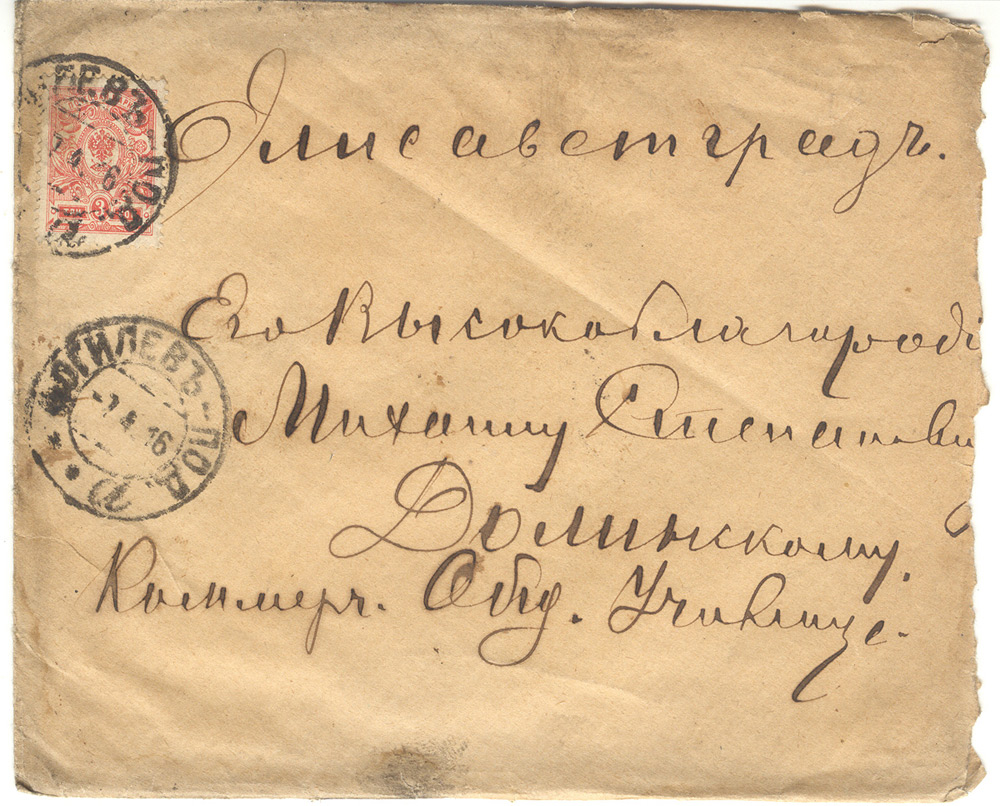 Элисаветградъ.
Его Высокоблагороді
Михаилу Степанови
Долинскому.
Коммерч. Общ. Училище.
3
МОГИЛЕВЪ-ПОД.
-7.4.16